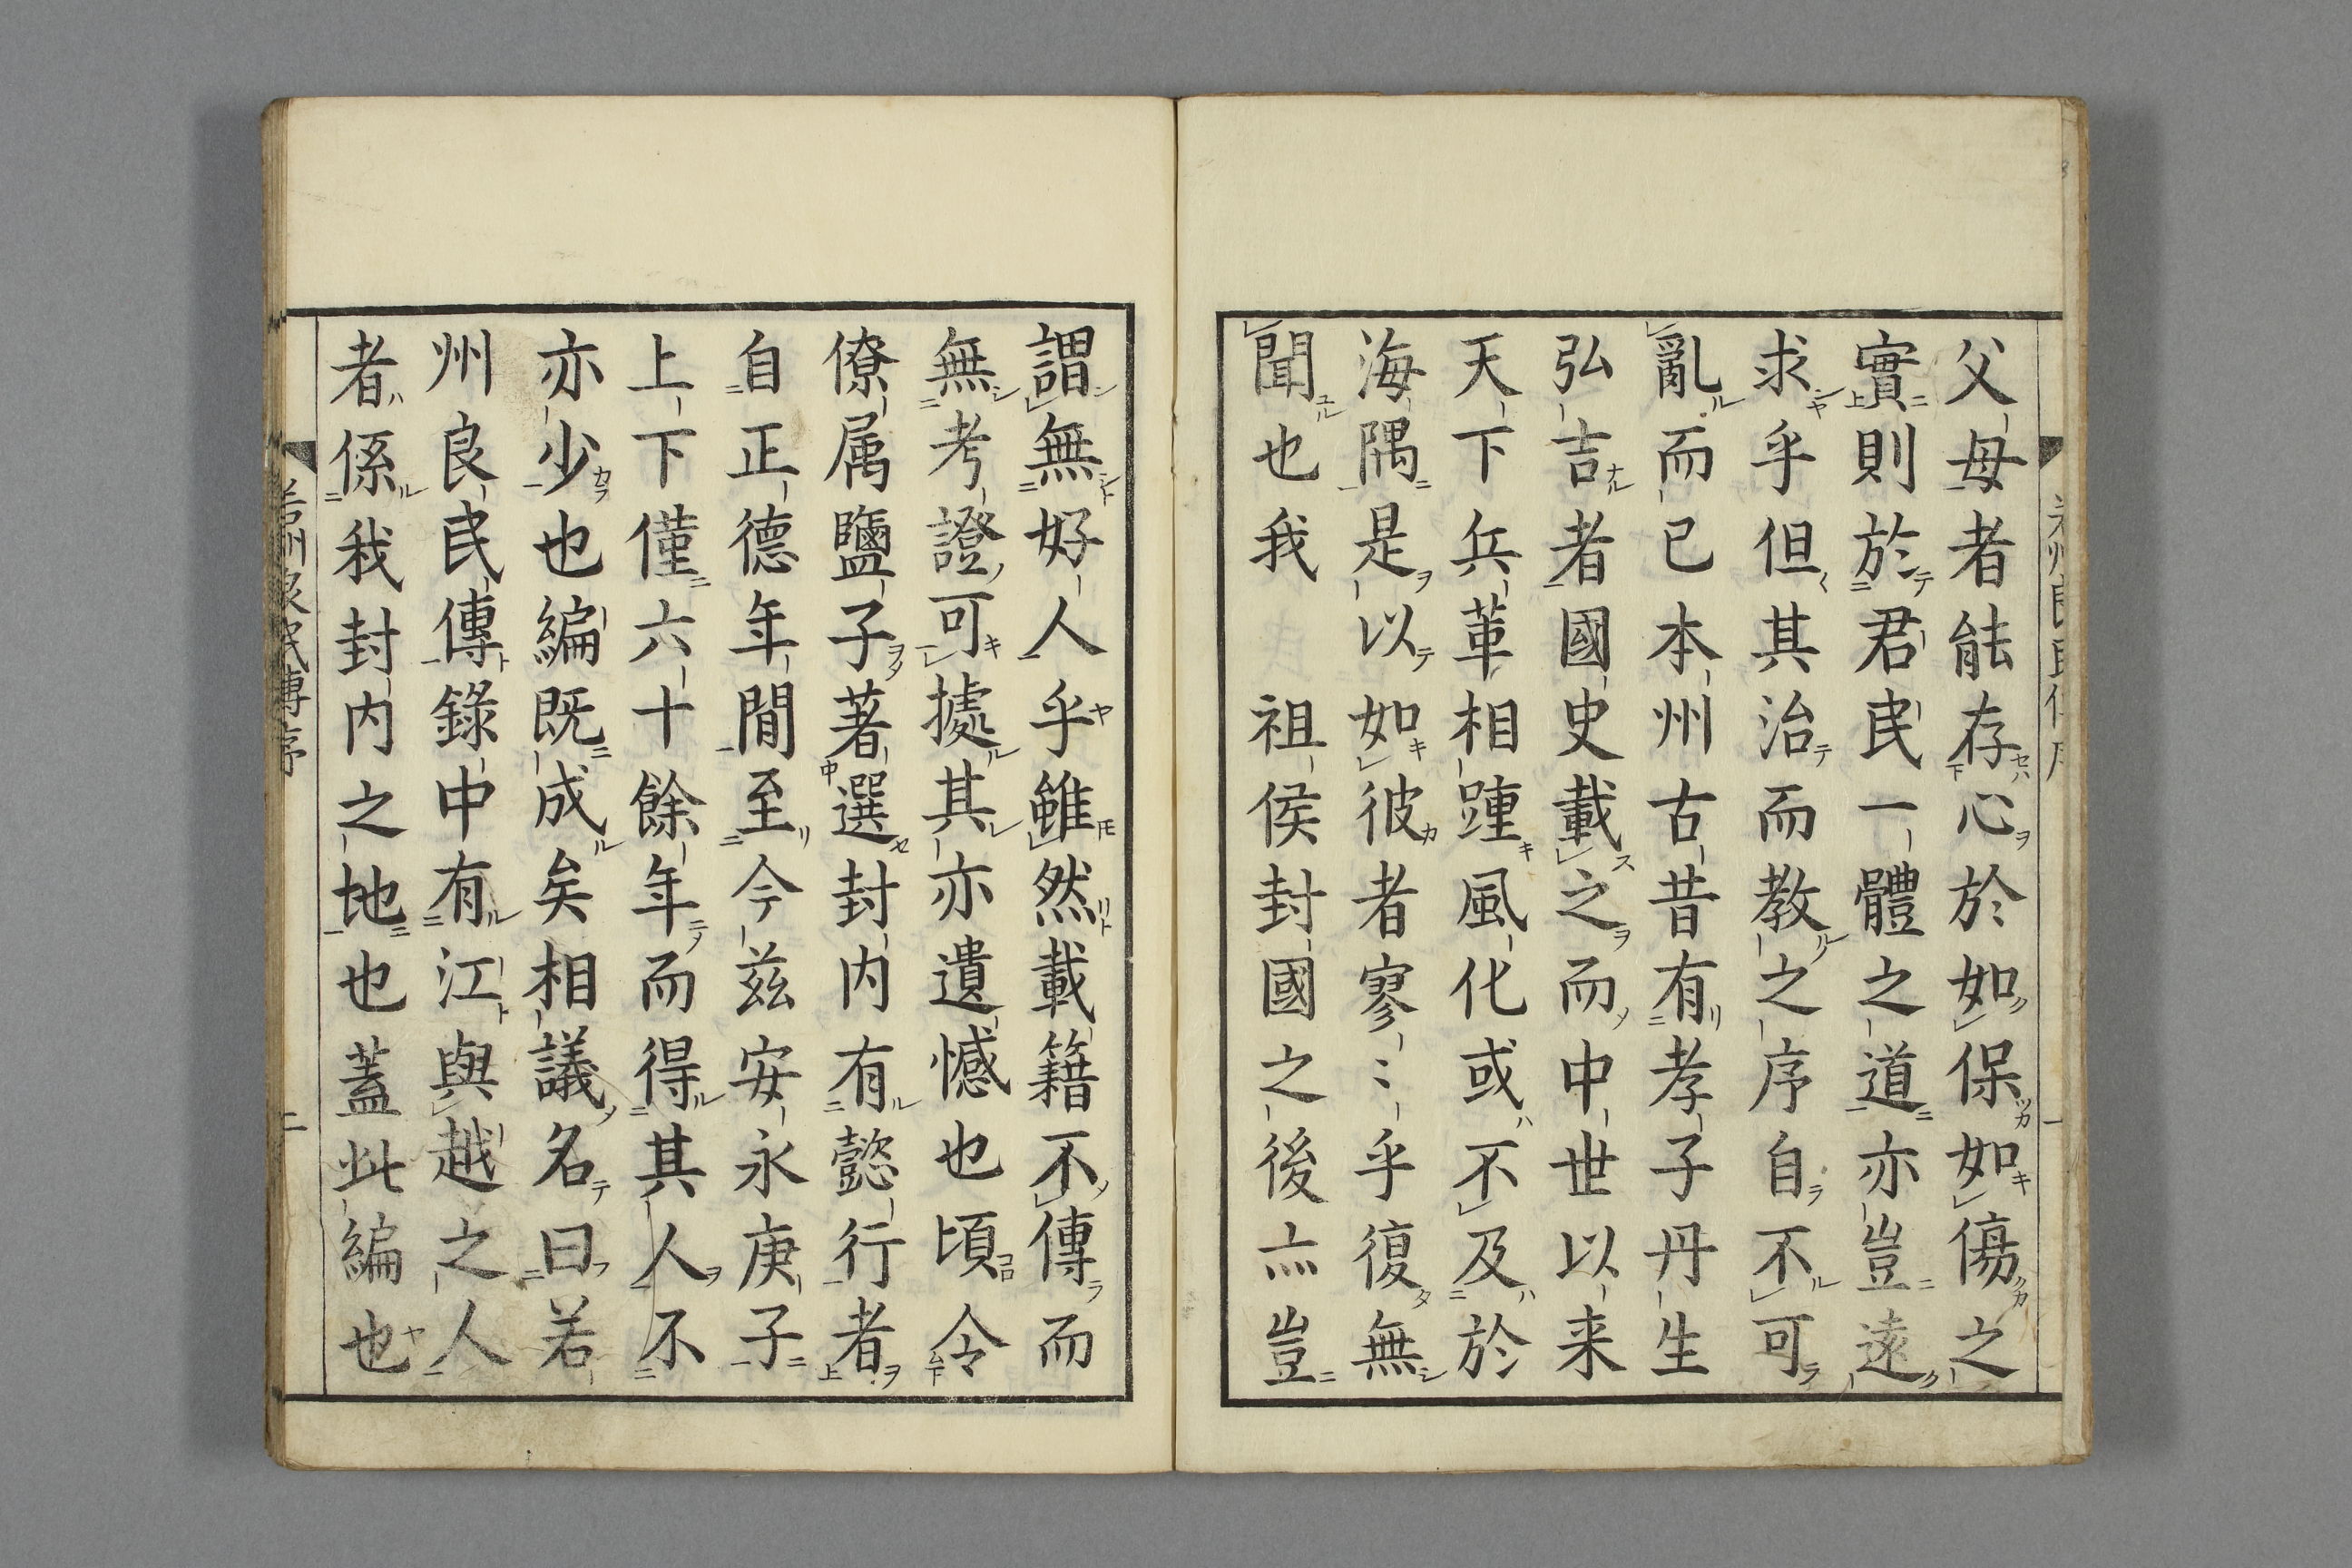 父母者能存心於如保如傷之
實則於君民一體之道亦豈遠
求乎但其治而教之序自不可
亂而已本州古昔有孝子丹生
弘吉者國史載之而中世以来
天下兵革相踵風化或不及於
海隅是以如彼者寥〻乎復無
聞也我 祖侯封國之後亦豈
謂無好人乎雖然載籍不傳而
無考證可據其亦遺憾也頃令
僚属鹽子著選封内有懿行者
自正德年間至今茲安永庚子
上下僅六十餘年而得其人不
亦少也編既成矣相議名曰若
州良民傳錄中有江與越之人
者係我封内之地也蓋此編也
若州良民傳序
二